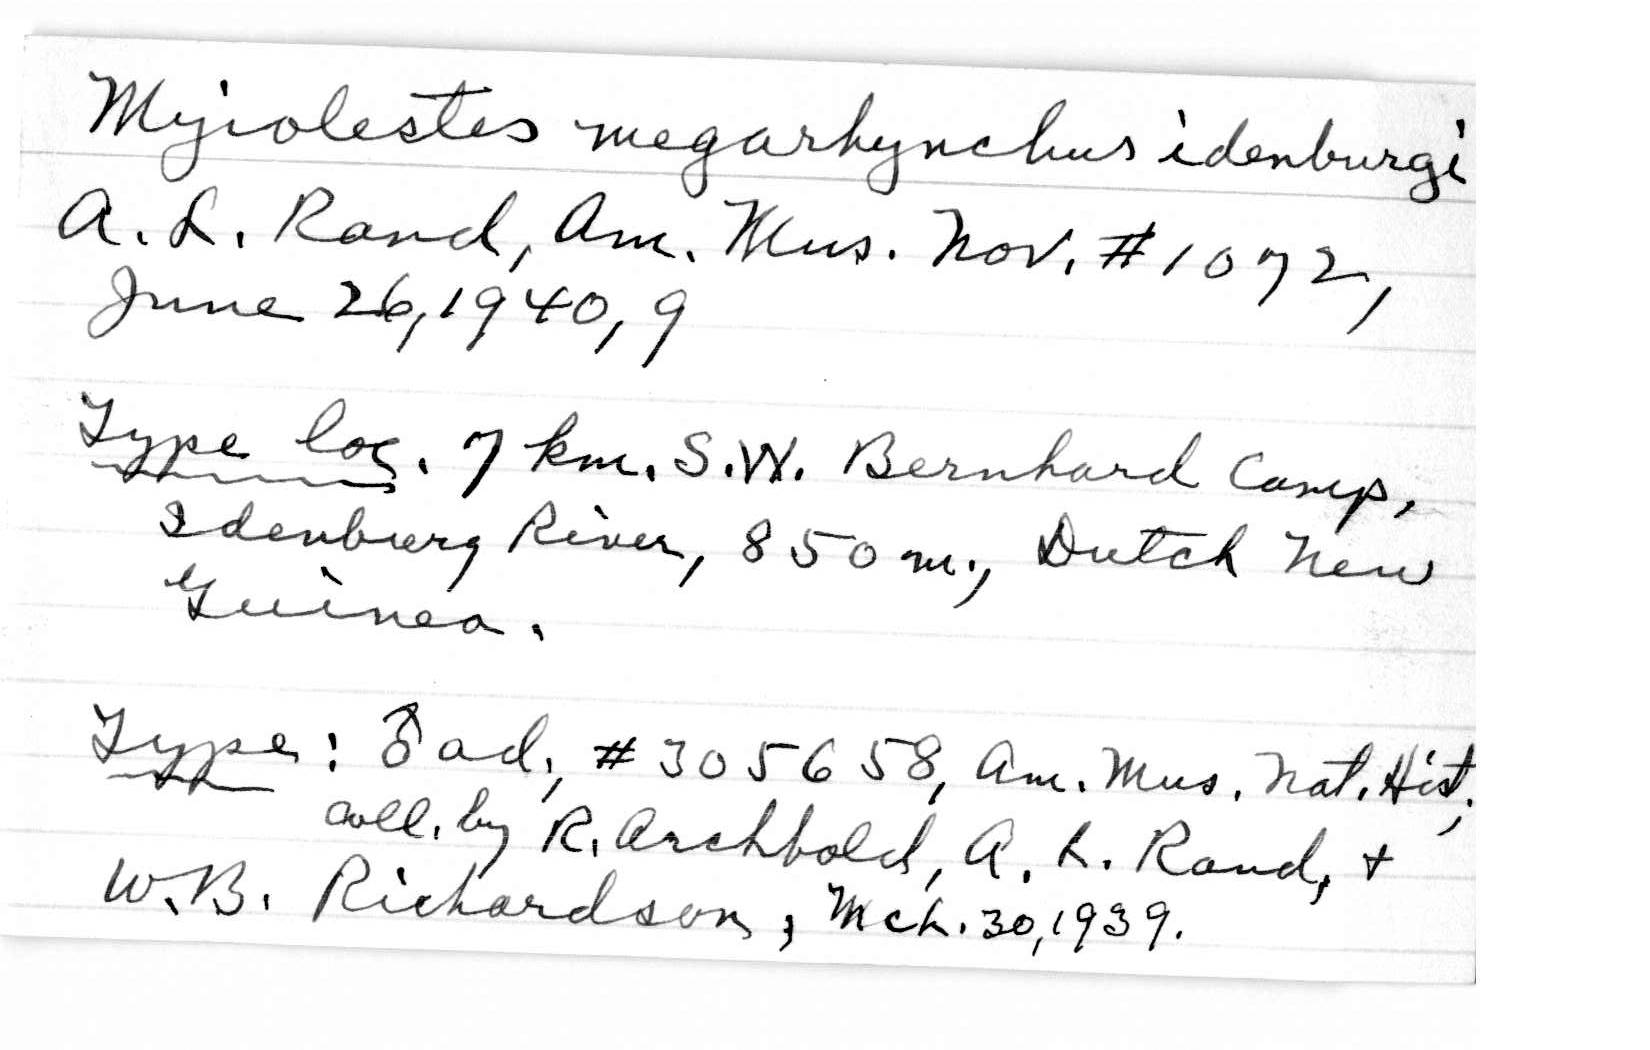 Myiolestes megarhynchus idenburgi
A. L. Rand, Am. Mus. Nov. #1072,
June 26, 1940, 9
Type loc. 7 km. S.W. Bernhard Camp,
Idenburg River, 850 m., Dutch New
Guinea.
Type: ♂ ad., #305658, Am. Mus. Nat. Hist.;
coll. by R. Archbold, A. L. Rand, +
W.B. Richardson, Mch. 30, 1939.